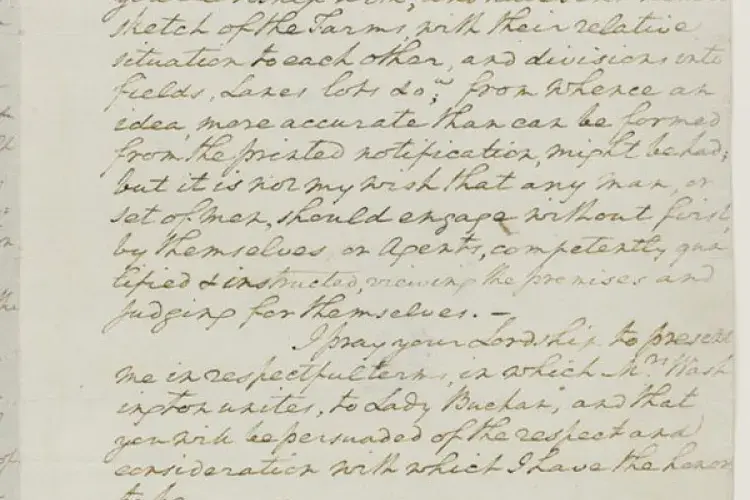 sketch of the Farms, with their relative
situation to each other, and divisions into
fields, Lanes lots &ca; from whence an
idea, more accurate than can be formed
from the printed notification, might be had;
but it is not my wish that any man, or
set of men, should engage without first,
by themselves, or Agents, competently qua
lified & instructed, viewing the premises and
judging for themselves. —
I pray your Lordship to present
me in respectful terms, in which Mrs Wash
ington unites, to Lady Buchan, and that
you will be persuaded of the respect and
consideration with which I have the honor
to be